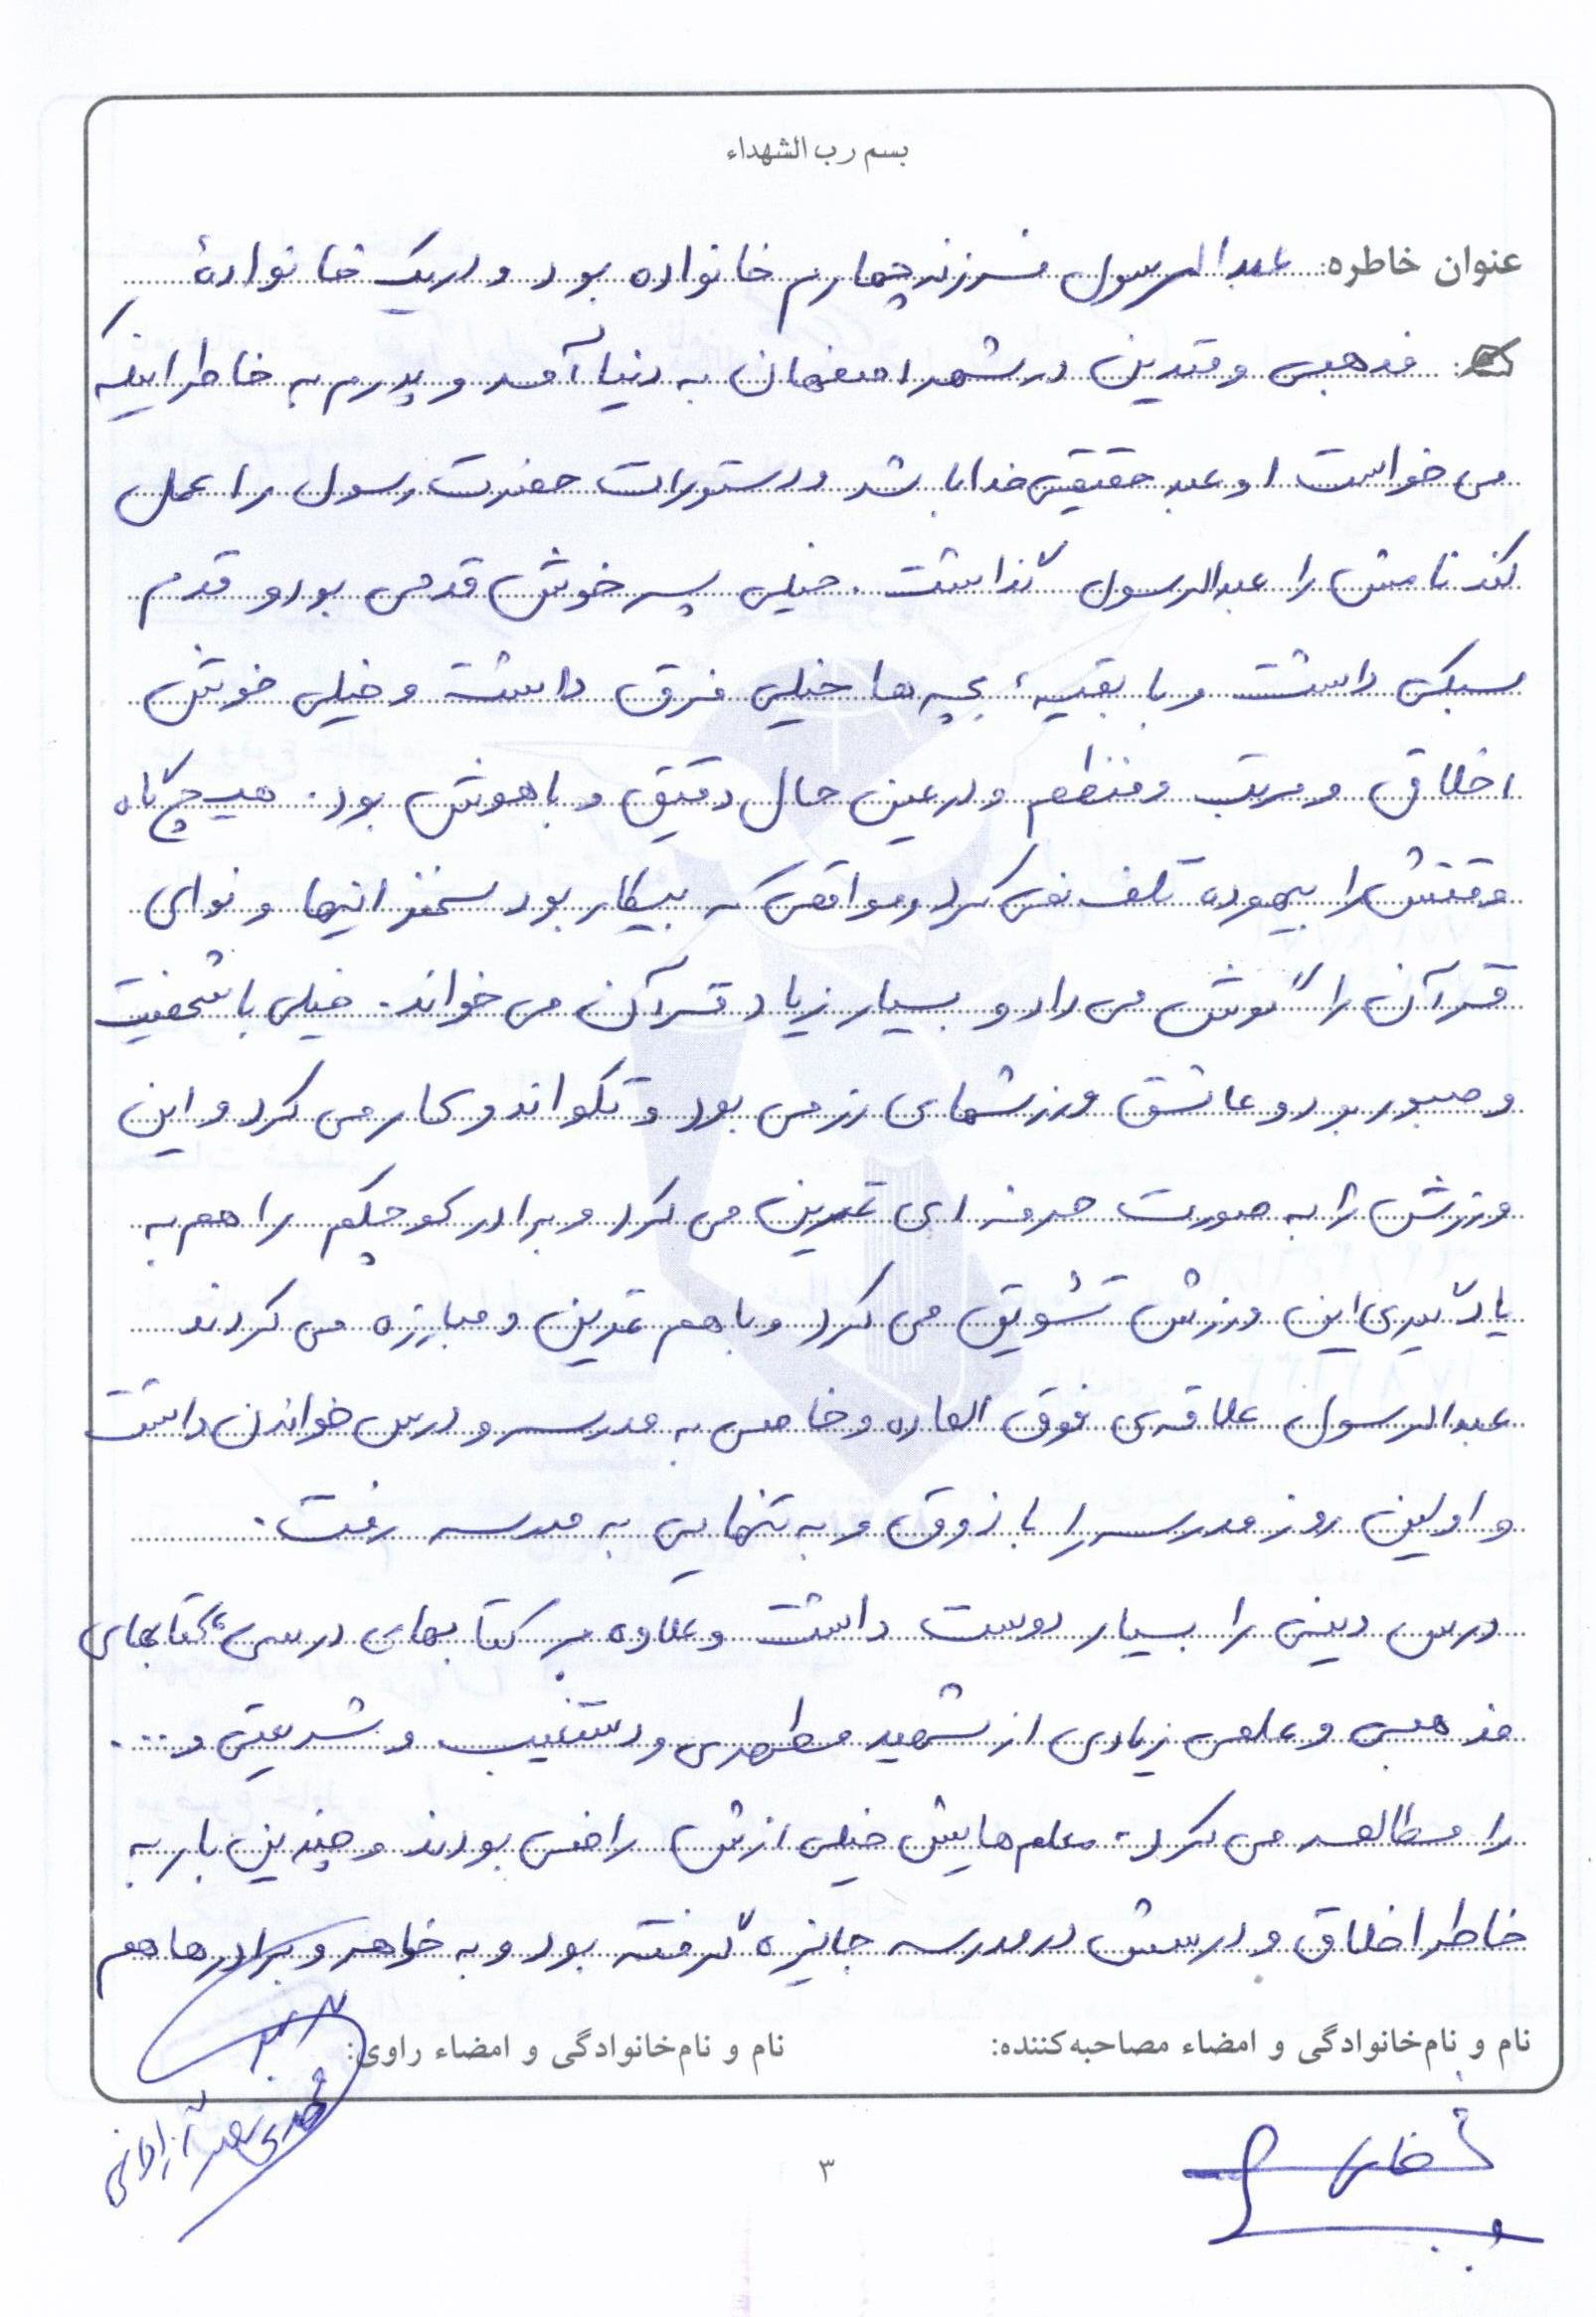 بسم رب الشهداء
عنوان خاطره: عبدالرسول فرزند چهارم خانواده بود و در یک خانوادهٔ
مذهبی و متدین در شهر اصفهان به دنیا آمد و پدرم به خاطر اینکه
می خواست او عبد حقیقی خدا باشد و دستورات حضرت رسول را عمل
کند نامش را عبدالرسول گذاشت. خیلی پسر خوش قدمی بود و قدم
سبکی داشت و با بقیهٔ بچه ها خیلی فرق داشت و خیلی خوش
اخلاق و مرتب و منظم و در عین حال دقیق و باهوش بود. هیچ گاه
وقتش را بیهوده تلف نمی کرد و مواقعی که بیکار بود سخنرانیها و نوای
قرآن را گوش می داد و بسیار زیاد قرآن می خواند. خیلی با شخصیت
و صبور بود و عاشق ورزشهای رزمی بود و تکواندو کار می کرد و این
ورزش را به صورت حرفه ای تمرین می کرد و برادر کوچکم را هم به
یادگیری این ورزش تشویق می کرد و با هم تمرین و مبارزه می کردند
عبدالرسول علاقه ی فوق العاده و خاصی به مدرسه و درس خواندن داشت
و اولین روز مدرسه را با ذوق و به تنهایی به مدرسه رفت.
درس دینی را بسیار دوست داشت و علاوه بر کتابهای درسی، کتابهای
مذهبی و علمی زیادی از شهید مطهری و دستغیب و شریعتی و ....
را مطالعه می کرد. معلم هایش خیلی ازش راضی بودند و چندین بار به
خاطر اخلاق و درسش در مدرسه جایزه گرفته بود و به خواهر و برادرها هم
نام و نام‌خانوادگی و امضاء مصاحبه‌کننده: نام و نام‌خانوادگی و امضاء راوی:
۳